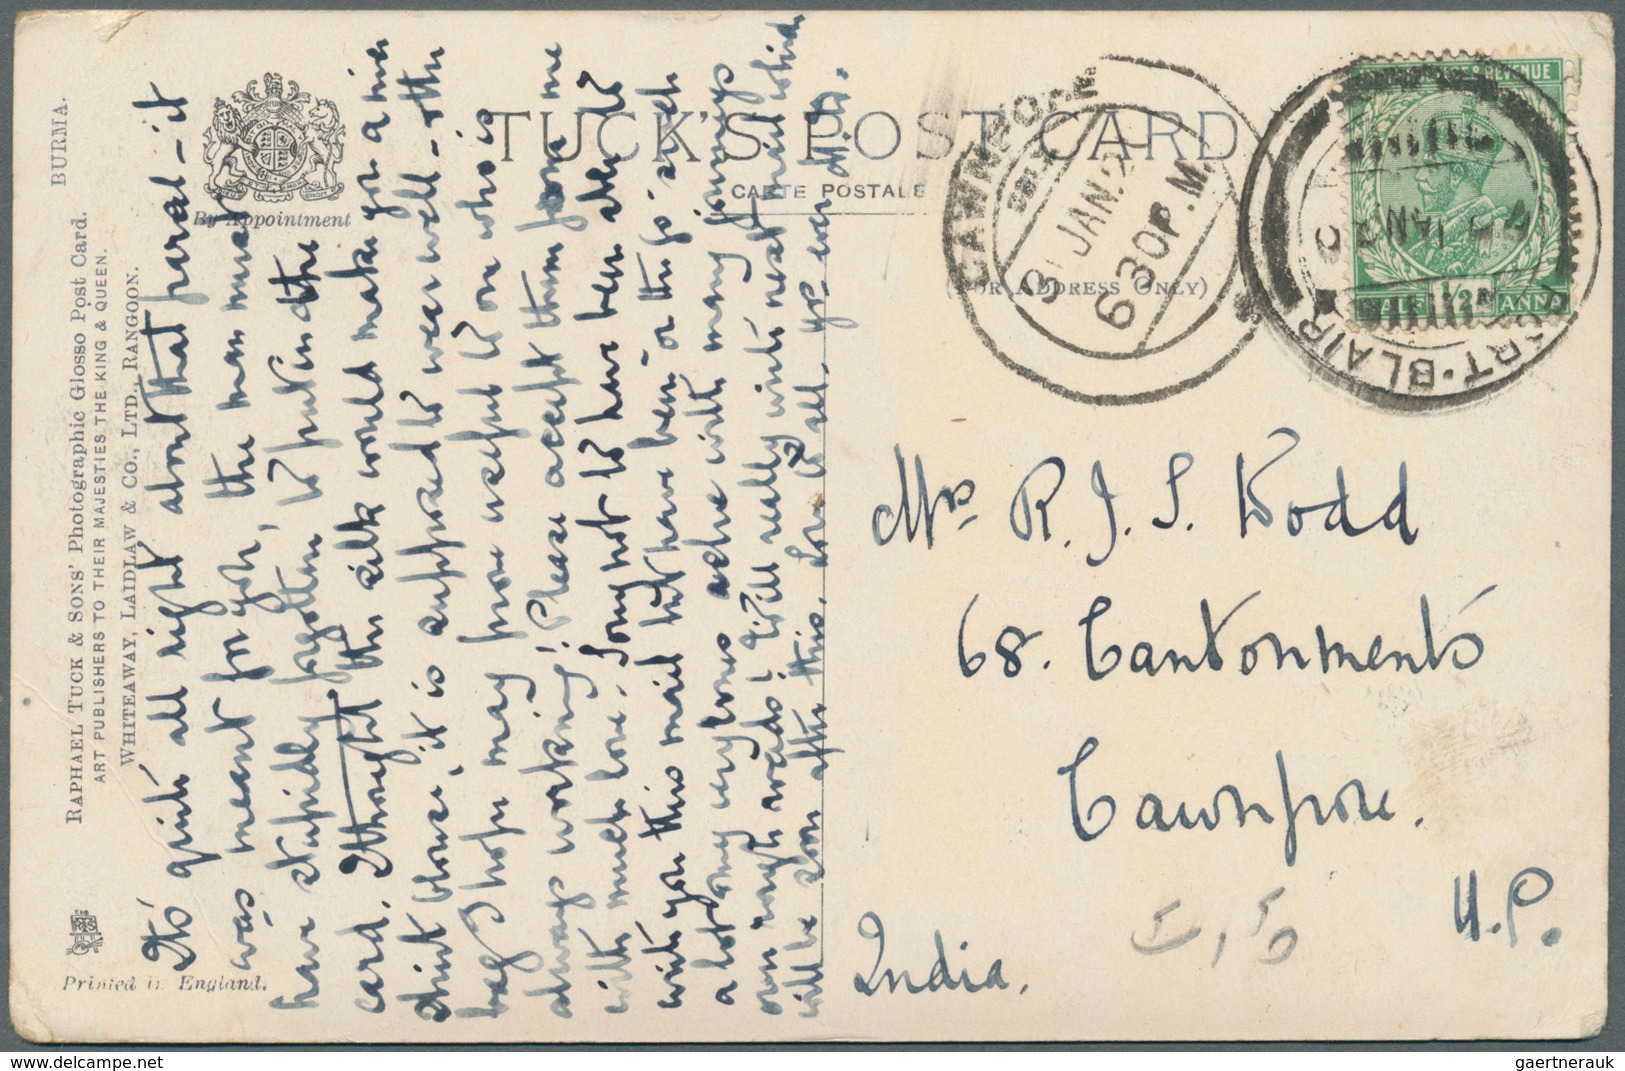 BURMA.
RAPHAEL TUCK & SONS' Photographic Glosso Post Card.
ART PUBLISHERS TO THEIR MAJESTIES THE KING & QUEEN.
WHITEAWAY, LAIDLAW & CO., LTD., RANGOON.
Printed in England.
By Appointment
TUCK'S POST CARD
CARTE POSTALE
(FOR ADDRESS ONLY)
It's quite all right about that parcel - it
was meant for you, the man must
have stupidly forgotten to put in the
card. I thought the silk would make you a nice
shirt blouse, it is supposed to wear well - the
bag I hope may prove useful to one who is
always working! Please accept them from me
with much love. Sorry not to have been able to
write you this mail but have been on the go such
a lot any my bones ache with many journeys
over rough roads! Will really write next mail which
will be soon after this. Love to all, yr ever
CAWNPORE
31 JAN. 2
6 30 P.M.
PORT·BLAIR
JAN
& REVENUE
HALF 1/2 A ANNA
Mrs R. J. S. Dodd
68. Cantonments
Cawnpore.
U.P.
India.
gaertnerauk / www.delcampe.net